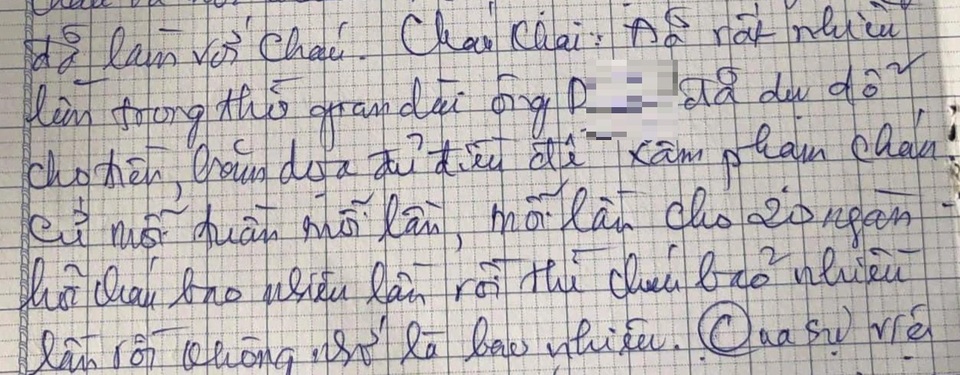 đã làm với cháu. Cháu khai: Đã rất nhiều
lần trong thời gian dài ông D đã dụ dỗ
cho tiền, hăm dọa đủ điều để xâm phạm cháu
cứ mỗi tuần mỗi lần, mỗi lần cho 20 ngàn
hỏi cháu bao nhiêu lần rồi thì cháu bảo nhiều
lần rồi không nhớ là bao nhiêu. Qua sự việ